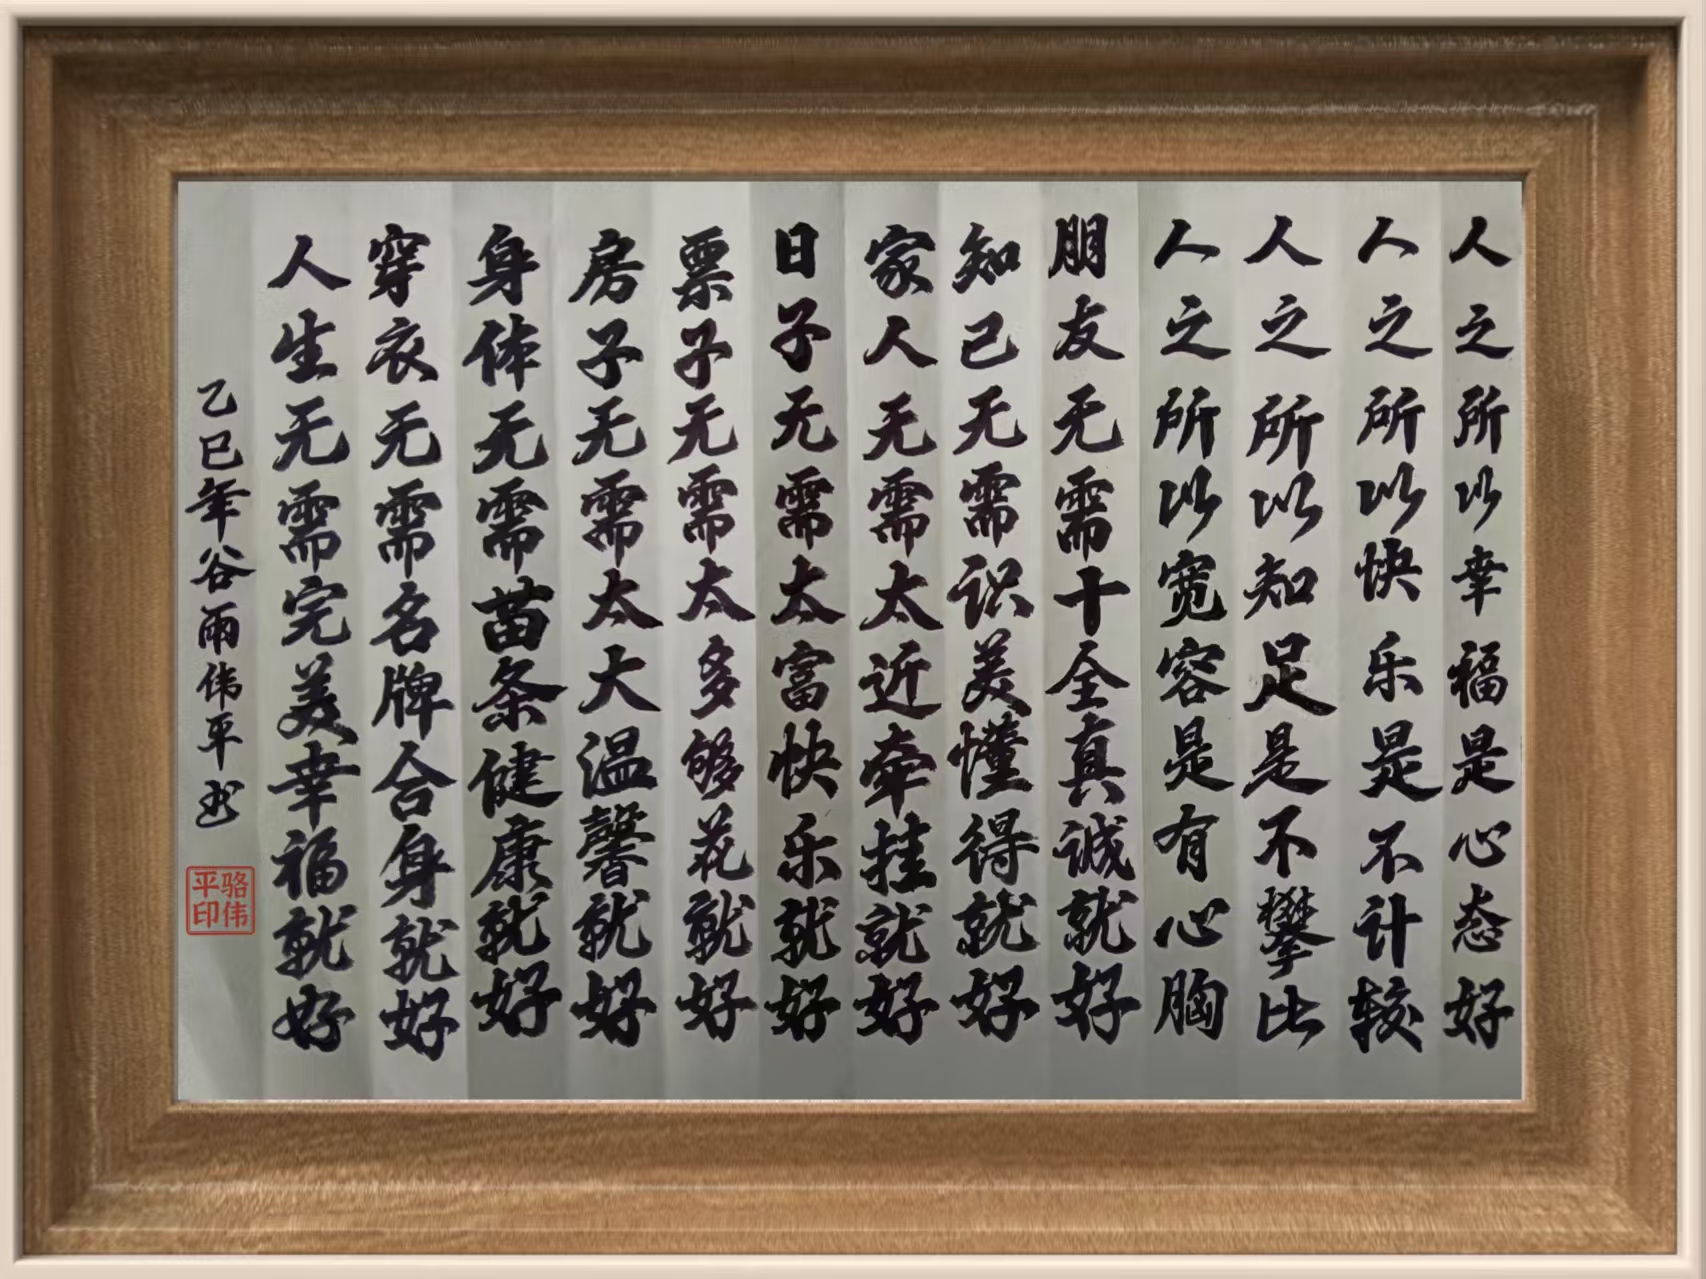 人之所以幸福是心态好
人之所以快乐是不计较
人之所以知足是不攀比
人之所以宽容是有心胸
朋友无需十全真诚就好
知己无需识美懂得就好
家人无需太近牵挂就好
日子无需太富快乐就好
票子无需太多够花就好
房子无需太大温馨就好
身体无需苗条健康就好
穿衣无需名牌合身就好
人生无需完美幸福就好
乙巳年谷雨伟平书
骆伟
平印